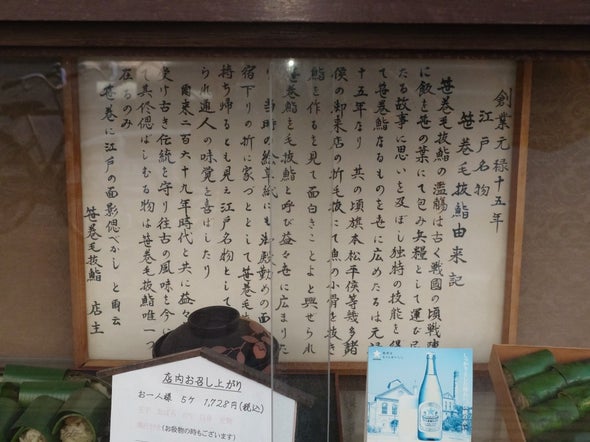 創業元禄十五年
江戸名物
笹巻毛抜鮨由来記
笹巻毛抜鮨の濫觴は古く戦国の頃戦陣
に飯を笹の葉にて包み兵糧として運び
たる故事に思いを及ぼし独特の技能を
て笹巻鮨なるものを世に広めたるは元
十五年なり 其の頃旗本松平侯等幾多諸
侯の御来店の折毛抜にて魚の小骨を抜き
鮨を作るを見て面白きことよと興ぜられ
笹巻鮨を毛抜鮨と呼び益々世に広まりた
当時の絵草紙にも 殿勤めの
宿下りの折に家づととして笹巻毛
持ち帰るとも見え江戸名物として
られ通人の味覚を喜ばしたり
爾来二百六十九年時代と共に益々
受け古き伝統を守り往古の風味を今
て其侭偲ばしむる物は笹巻毛抜鮨唯一
在るのみ
笹巻に江戸の面影偲べかし と爾云
笹巻毛抜鮨 店主
店内お召し上がり
お一人様 5ケ 1,728円(税込)
(お扱物の時もございます)